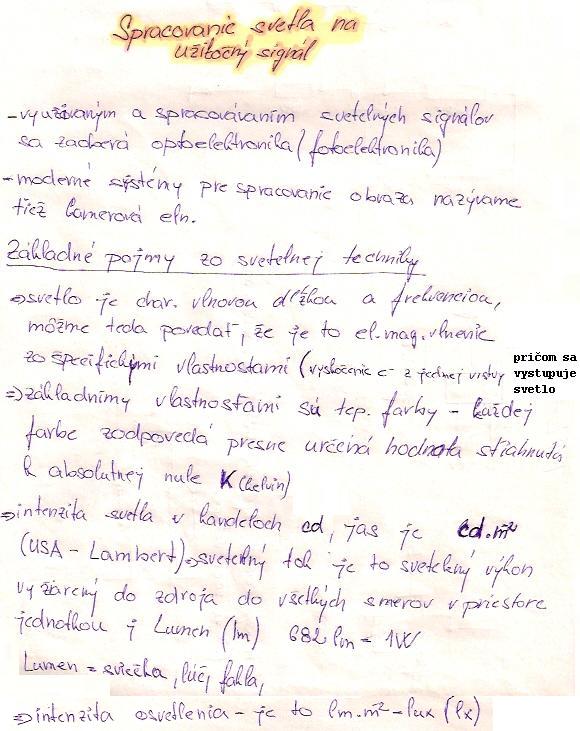 Spracovanie svetla na
užitočný signál
- využívaným a spracovávaním svetelných signálov
sa zaoberá optoelektronika (fotoelektronika)
- moderné systémy pre spracovanie obrazu nazývame
tiež kamerová eln.
Základné pojmy zo svetelnej techniky
⇒ svetlo je char. vlnovou dĺžkou a frekvenciou,
môžme teda povedať, že je to el.mag. vlnenie
zo špecifickými vlastnosťami (vyskočenie e- z jednej vrstvy pričom sa
vystupuje
svetlo
⇒ základnímy vlastnosťami sú tep. farby - každej
farbe zodpovedá presne určená hodnota stiahnutá
k absolutnej nule K (kelvin)
⇒ intenzita svetla v kandeloch cd, jas je cd.m²
(USA - Lambert) ⇒ svetelný tok je to svetelný výkon
vyžiarený do zdroja do všetkých smerov v priestore
jednotkou j Lumen (lm) 682 lm = 1W
Lumen = sviečka, lúč, fakla,
⇒ intenzita osvetlenia - je to lm.m² - lux (lx)